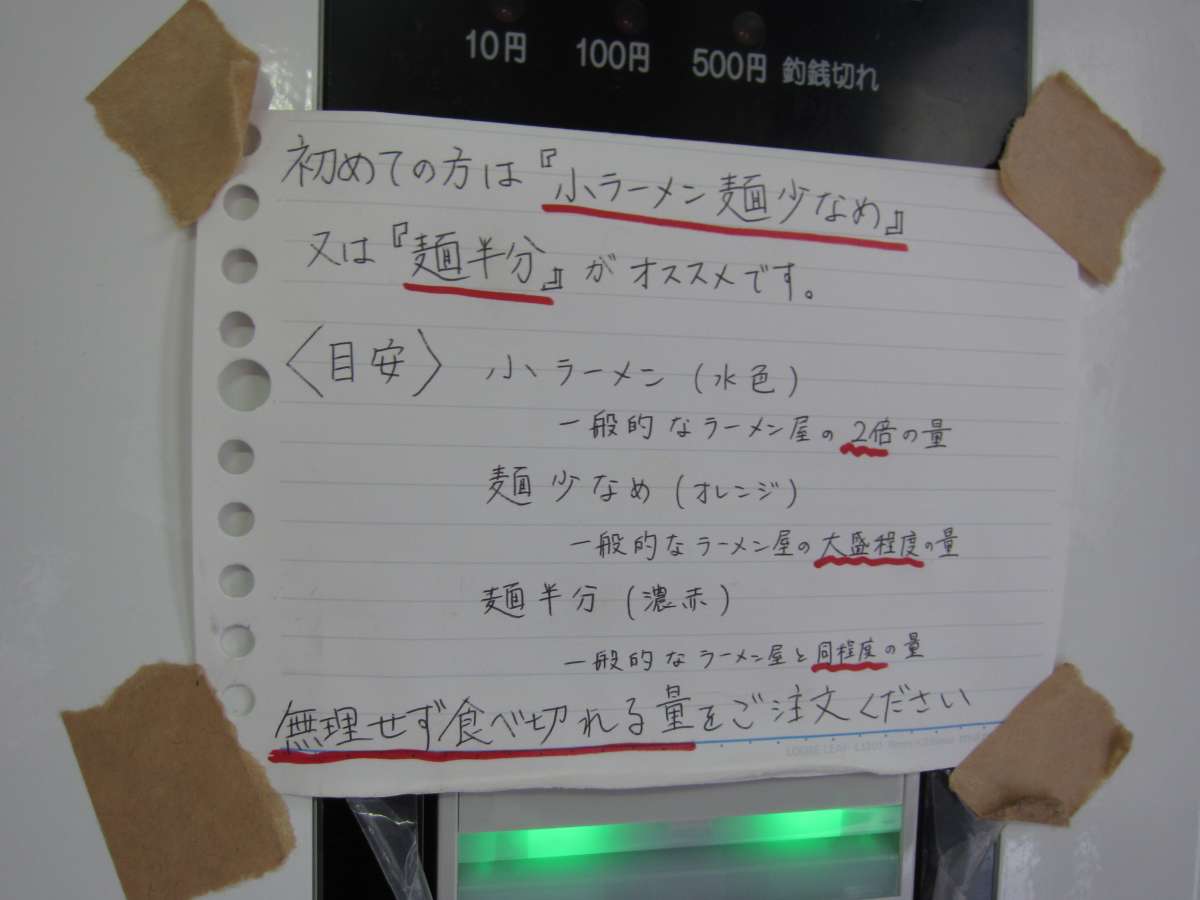 10円 100円 500円 釣銭切れ
初めての方は『小ラーメン麺少なめ』
又は『麺半分』がオススメです。
〈目安〉 小ラーメン(水色)
一般的なラーメン屋の2倍の量
麺少なめ(オレンジ)
一般的なラーメン屋の大盛程度の量
麺半分(濃赤)
一般的なラーメン屋と同程度の量
無理せず食べ切れる量をご注文ください
LOOSE LEAF